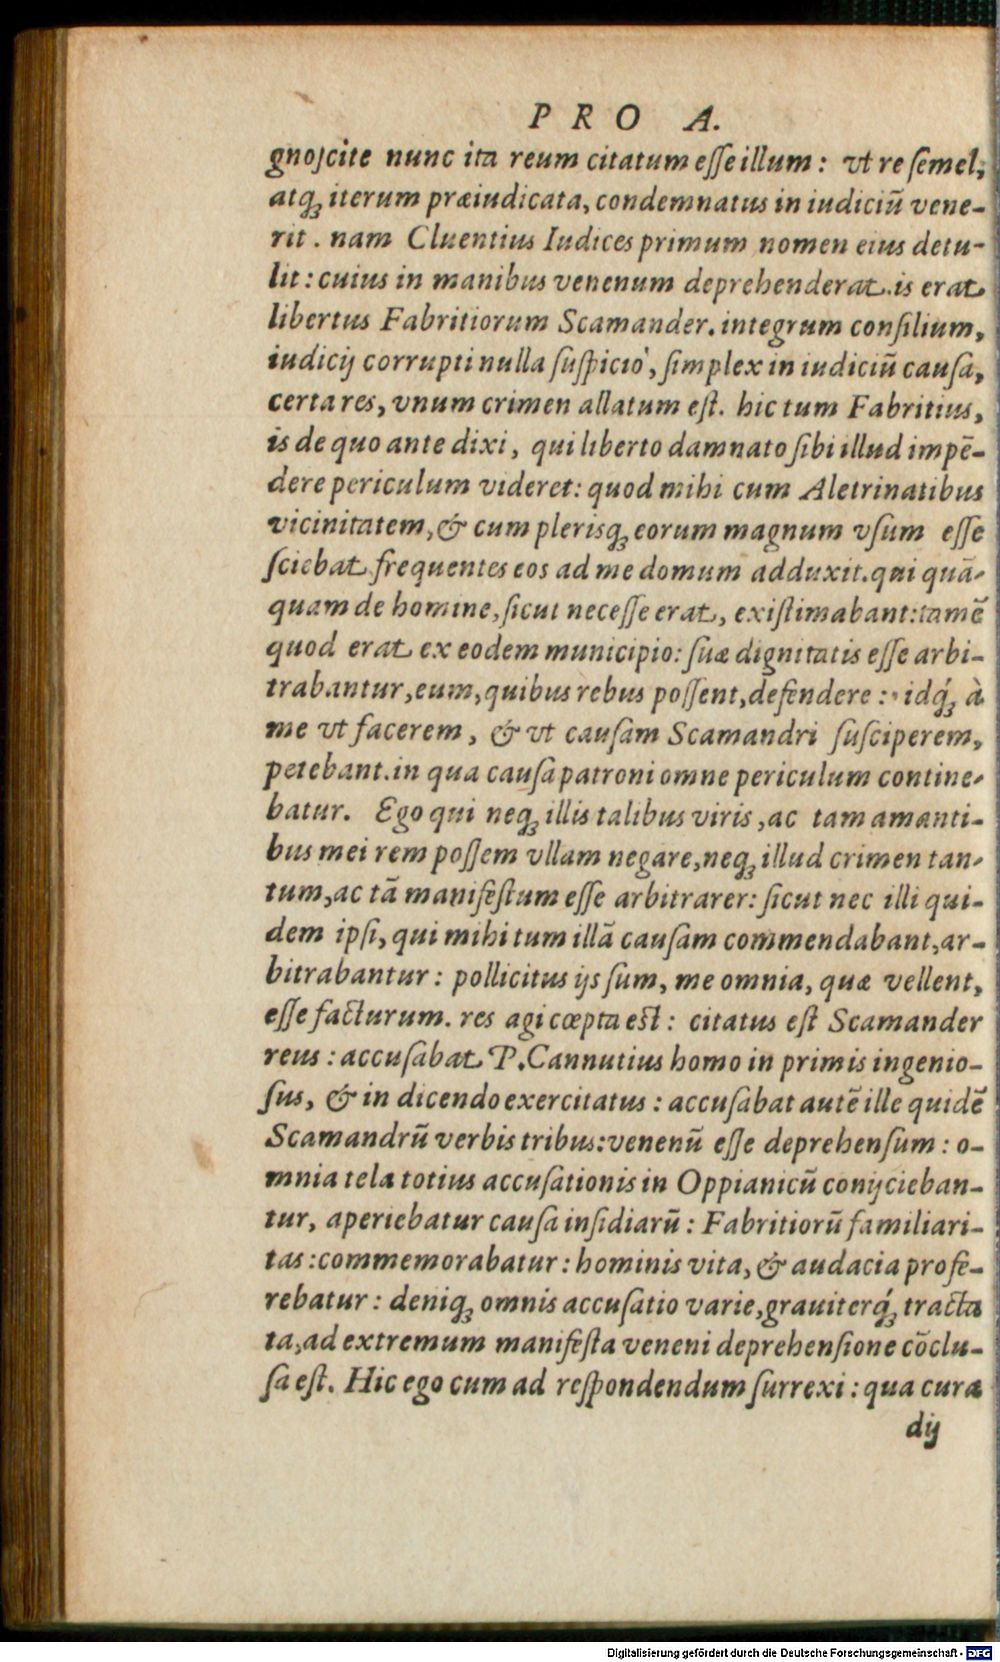 PRO A.
gnoſcite nunc ita reum citatum eſſe illum : vt re ſemel,
atq̃ iterum præiudicata, condemnatus in iudiciũ vene-
rit . nam Cluentius Iudices primum nomen eius detu-
lit : cuius in manibus venenum deprehenderat. is erat
libertus Fabritiorum Scamander. integrum conſilium,
iudicij corrupti nulla ſuſpicio, ſimplex in iudiciũ cauſa,
certa res, vnum crimen allatum eſt. hic tum Fabritius,
is de quo ante dixi, qui liberto damnato ſibi illud impẽ-
dere periculum videret: quod mihi cum Aletrinatibus
vicinitatem, & cum plerisq̃ eorum magnum vſum eſſe
ſciebat frequentes eos ad me domum adduxit. qui quã-
quam de homine, ſicut neceſſe erat, exiſtimabant: tamẽ
quod erat ex eodem municipio: ſuæ dignitatis eſſe arbi-
trabantur, eum, quibus rebus poſſent, defendere : idq̃ à
me vt facerem, & vt cauſam Scamandri ſuſciperem,
petebant. in qua cauſa patroni omne periculum contine-
batur. Ego qui neq̃ illis talibus viris, ac tam amanti-
bus mei rem poſſem vllam negare, neq̃ illud crimen tan-
tum, ac tã manifeſtum eſſe arbitrarer: ſicut nec illi qui-
dem ipſi, qui mihi tum illã cauſam commendabant, ar-
bitrabantur : pollicitus ijs ſum, me omnia, quæ vellent,
eſſe facturum. res agi cœpta eſt : citatus eſt Scamander
reus : accuſabat P. Cannutius homo in primis ingenio-
ſus, & in dicendo exercitatus : accuſabat autẽ ille quidẽ
Scamandrũ verbis tribus: venenũ eſſe deprehenſum : o-
mnia tela totius accuſationis in Oppianicũ conijcieban-
tur, aperiebatur cauſa inſidiarũ : Fabritiorũ familiari-
tas : commemorabatur : hominis vita, & audacia profe-
rebatur : deniq̃ omnis accuſatio varie, grauiterq̃ tracta
ta, ad extremum manifeſta veneni deprehenſione cõclu-
ſa eſt. Hic ego cum ad reſpondendum ſurrexi : qua cura
dij
Digitalisierung gefördert durch die Deutsche Forschungsgemeinschaft - DFG